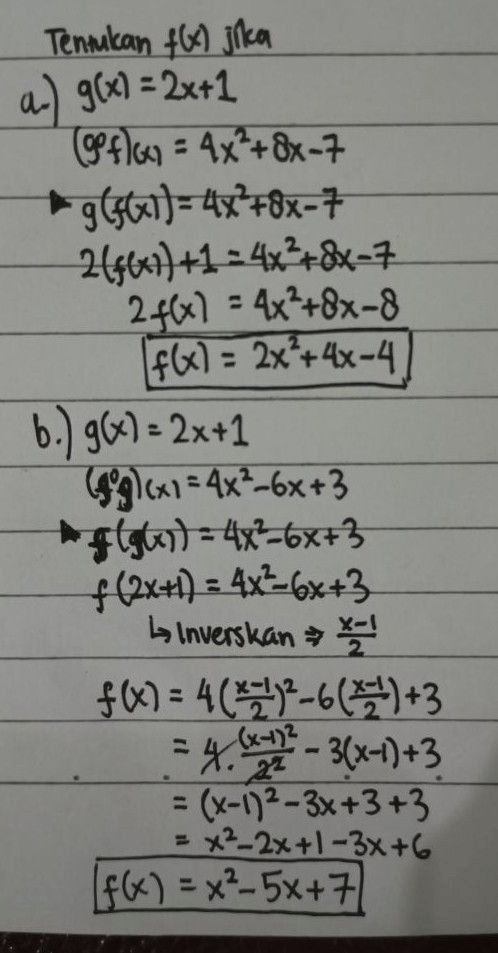 Tentukan f(x) jika
a.) g(x) = 2x+1
(g°f)(x) = 4x²+8x-7
▶ g(f(x)) = 4x²+8x-7
2(f(x))+1 = 4x²+8x-7
2f(x) = 4x²+8x-8
f(x) = 2x²+4x-4
b.) g(x) = 2x+1
(f°g)(x) = 4x²-6x+3
▶ f(g(x)) = 4x²-6x+3
f(2x+1) = 4x²-6x+3
↳ Inverskan ⇒ (x-1)/2
f(x) = 4((x-1)/2)²-6((x-1)/2)+3
= 4·(x-1)²/2² - 3(x-1)+3
= (x-1)²-3x+3+3
= x²-2x+1-3x+6
f(x) = x²-5x+7